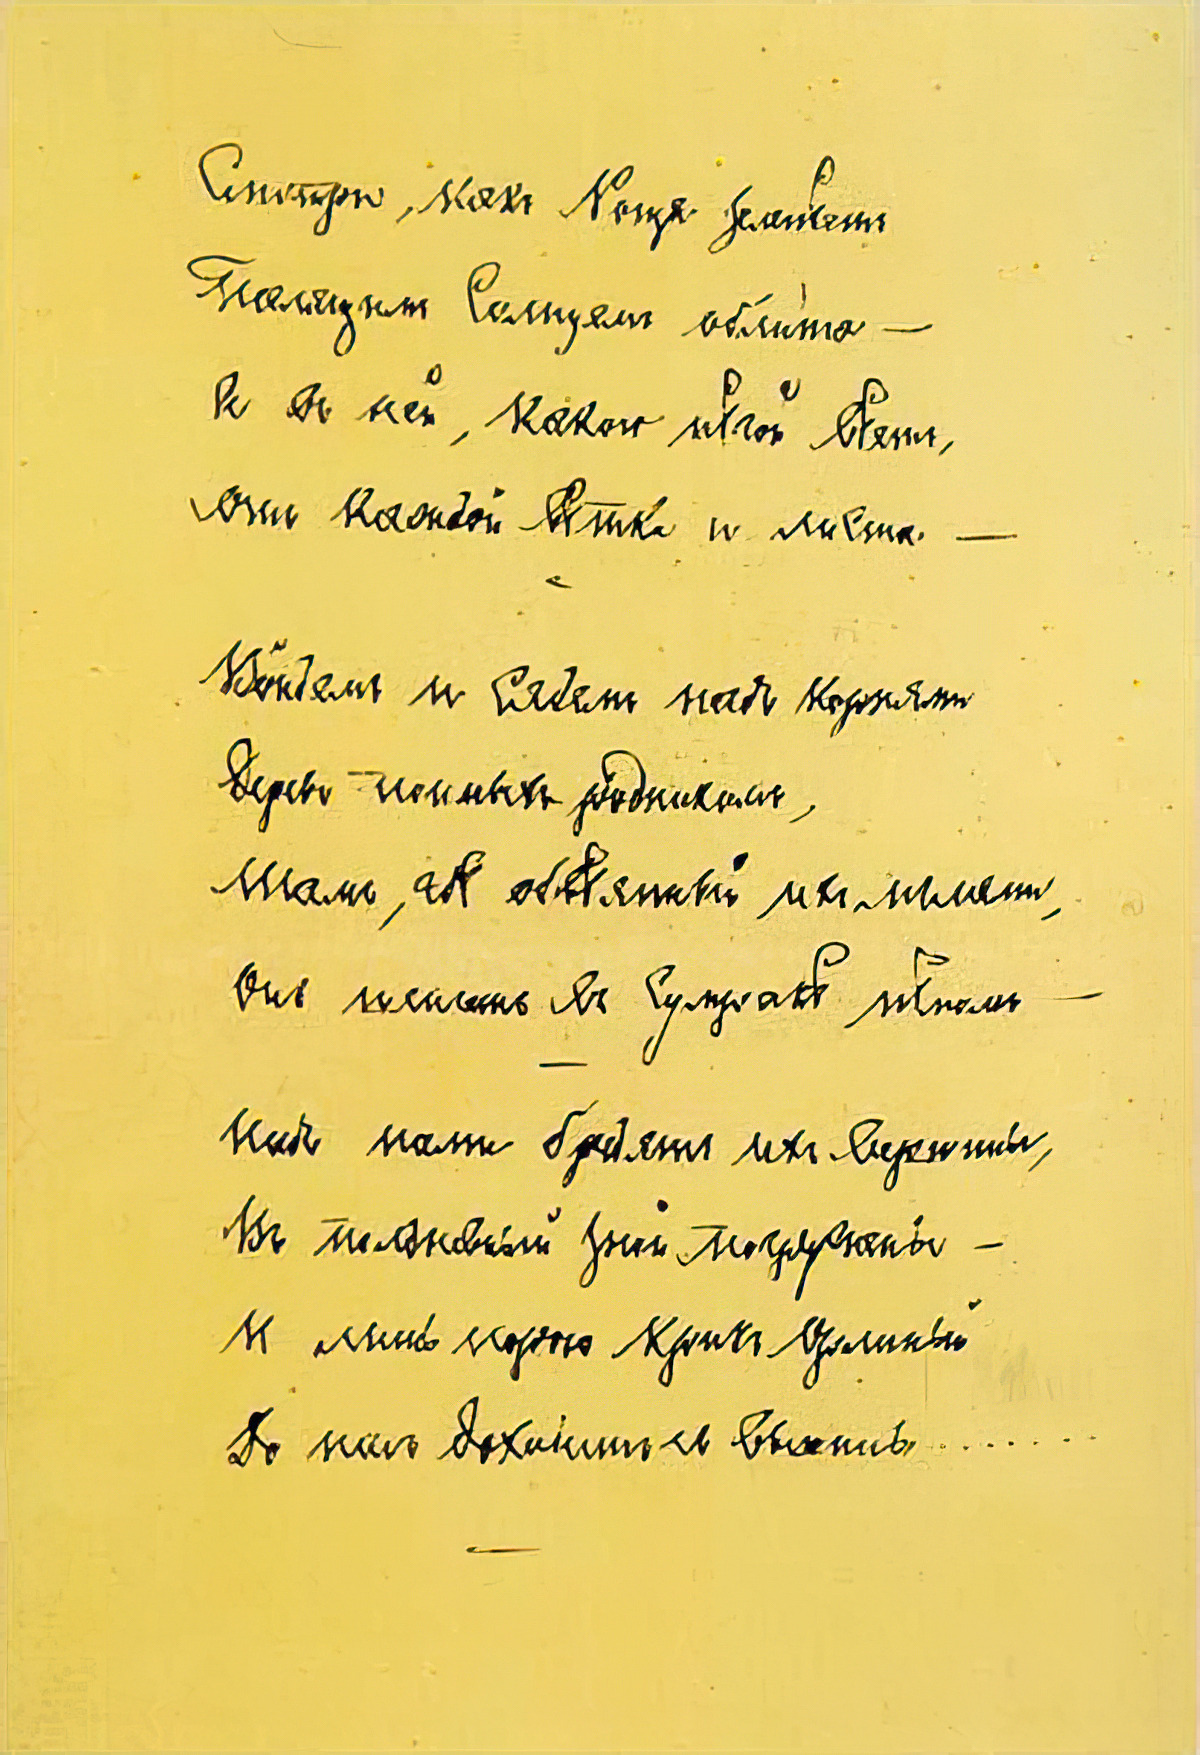 Смотри, какъ Роща зеленѣетъ
Палящимъ Солнцемъ облита —
И въ ней, какою нѣгой вѣетъ,
Отъ каждой вѣтки и листа. —
Войдемъ и сядемъ надъ корнями
Деревъ поимыхъ родникомъ,
Тамъ, гдѣ обвѣянный ихъ мглами,
Онъ шепчетъ въ сумракѣ нѣмомъ —
Надъ нами бредятъ ихъ вершины,
Въ полдневный зной погружены —
И лишь порою крикъ орлиный
До насъ доходитъ съ вышины. . . . . . . .